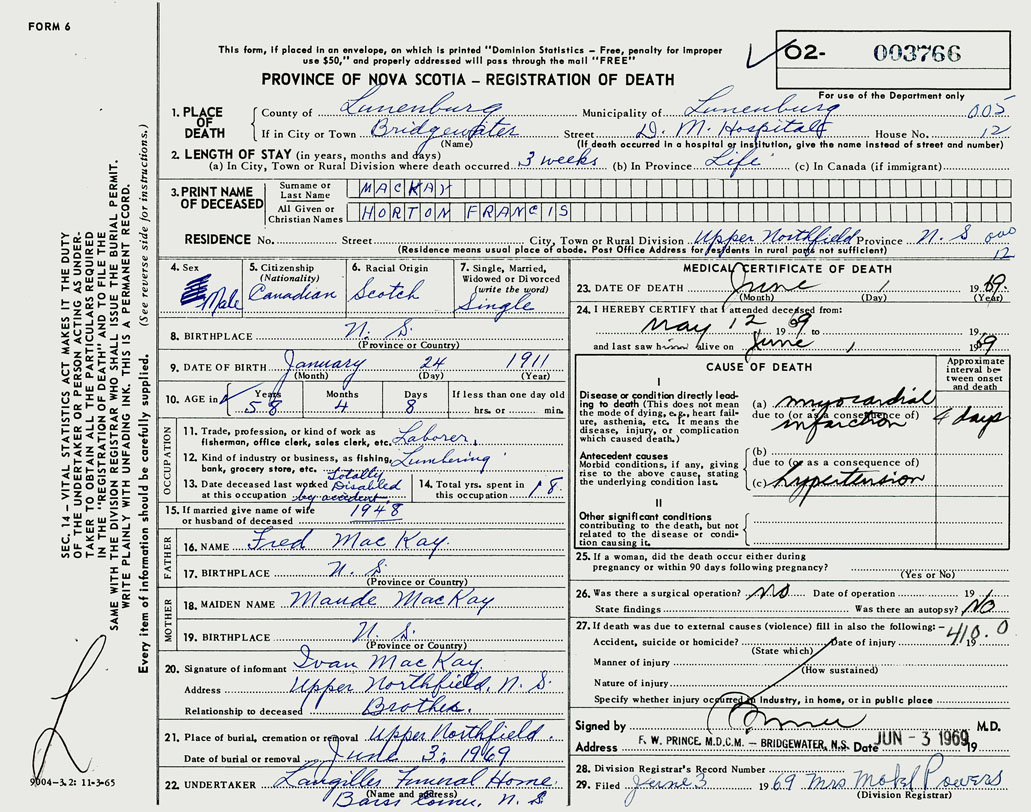 FORM 6
This form, if placed in an envelope, on which is printed "Dominion Statistics – Free, penalty for improper
use $50," and properly addressed will pass through the mail "FREE"
PROVINCE OF NOVA SCOTIA – REGISTRATION OF DEATH
02- 003766
For use of the Department only
1. PLACE OF DEATH County of Lunenburg Municipality of Lunenburg 005
If in City or Town Bridgewater Street D. M. Hospital House No. 12
(Name) (If death occurred in a hospital or institution, give the name instead of street and number)
2. LENGTH OF STAY (in years, months and days)
(a) In City, Town or Rural Division where death occurred 3 weeks (b) In Province Life (c) In Canada (if immigrant)
3. PRINT NAME OF DECEASED
Surname or Last Name MACKAY
All Given or Christian Names HORTON FRANCIS
RESIDENCE No. Street City, Town or Rural Division Upper Northfield Province N. S 000
(Residence means usual place of abode. Post Office Address for residents in rural parts not sufficient) 12
4. Sex Male
5. Citizenship (Nationality) Canadian
6. Racial Origin Scotch
7. Single, Married, Widowed or Divorced (write the word) Single
8. BIRTHPLACE N. S.
(Province or Country)
9. DATE OF BIRTH January 24 1911
(Month) (Day) (Year)
10. AGE in Years 58 Months 4 Days 8 If less than one day old hrs. or min.
OCCUPATION
11. Trade, profession, or kind of work as fisherman, office clerk, sales clerk, etc. Laborer.
12. Kind of industry or business, as fishing, bank, grocery store, etc. Lumbering
13. Date deceased last worked at this occupation Totally Disabled by accident.
14. Total yrs. spent in this occupation 18
15. If married give name of wife or husband of deceased 1948
FATHER
16. NAME Fred MacKay.
17. BIRTHPLACE N. S.
(Province or Country)
MOTHER
18. MAIDEN NAME Maude MacKay
19. BIRTHPLACE N. S.
(Province or Country)
20. Signature of informant Ivan MacKay.
Address Upper Northfield, N. S.
Relationship to deceased Brother.
21. Place of burial, cremation or removal Upper Northfield.
Date of burial or removal June 3, 1969
22. UNDERTAKER Langilles Funeral Home
(Name and address)
Barss Corner, N. S
MEDICAL CERTIFICATE OF DEATH
23. DATE OF DEATH June 1 1969.
(Month) (Day) (Year)
24. I HEREBY CERTIFY that I attended deceased from:
May 12 69 to 19
and last saw him alive on June 1, 1969
CAUSE OF DEATH
Approximate interval between onset and death
I
Disease or condition directly leading to death (This does not mean the mode of dying, e.g., heart failure, asthenia, etc. It means the disease, injury, or complication which caused death.)
(a) myocardial
due to (or as a consequence of)
infarction 4 days
Antecedent causes
Morbid conditions, if any, giving rise to the above cause, stating the underlying condition last.
(b)
due to (or as a consequence of)
(c) hypertension
II
Other significant conditions contributing to the death, but not related to the disease or condition causing it.
25. If a woman, did the death occur either during pregnancy or within 90 days following pregnancy?
(Yes or No)
26. Was there a surgical operation? No Date of operation 19
State findings Was there an autopsy? No
27. If death was due to external causes (violence) fill in also the following:– 410.0
Accident, suicide or homicide? Date of injury 19
(State which)
Manner of injury
(How sustained)
Nature of injury
Specify whether injury occurred in industry, in home, or in public place
Signed by M.D.
Address F. W. PRINCE, M.D.C.M. – BRIDGEWATER, N.S. Date JUN - 3 1969 19
28. Division Registrar's Record Number
29. Filed June 3 1969 Mrs Powers
(Division Registrar)
SEC. 14 – VITAL STATISTICS ACT MAKES IT THE DUTY
OF THE UNDERTAKER OR PERSON ACTING AS UNDER-
TAKER TO OBTAIN ALL THE PARTICULARS REQUIRED
IN THE "REGISTRATION OF DEATH" AND TO FILE THE
SAME WITH THE DIVISION REGISTRAR WHO SHALL ISSUE THE BURIAL PERMIT.
WRITE PLAINLY WITH UNFADING INK. THIS IS A PERMANENT RECORD.
Every item of information should be carefully supplied. (See reverse side for instructions.)
9004–3.2: 11-3-65